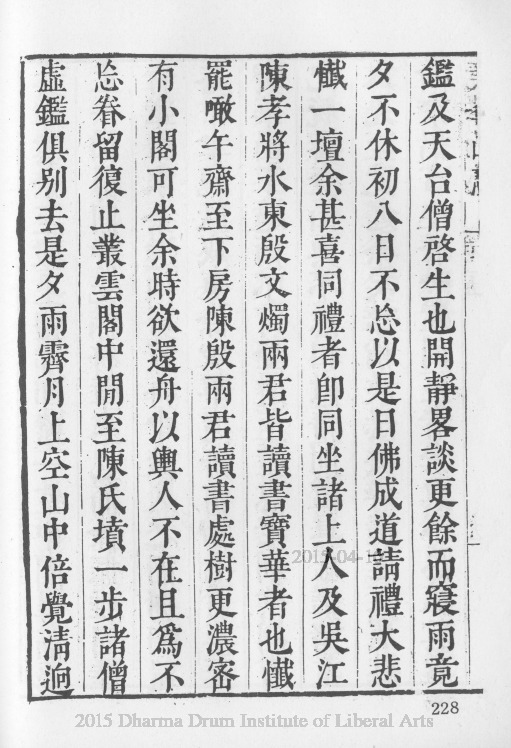 鑑及天台僧啓生也開靜畧談更餘而寢雨竟
夕不休初八日不㤀以是日佛成道請禮大悲
懺一壇余甚喜同禮者卽同坐諸上人及吳江
陳孝將水東殷文燭兩君皆讀書寶華者也懺
罷噉午齋至下房陳殷兩君讀書處樹更濃密
有小閣可坐余時欲還舟以輿人不在且爲不
㤀眷留復止叢雲閣中閒至陳氏墳一步諸僧
虛鑑俱別去是夕雨霽月上空山中倍覺淸迥
2015-04-1
228
2015 Dharma Drum Institute of Liberal Arts